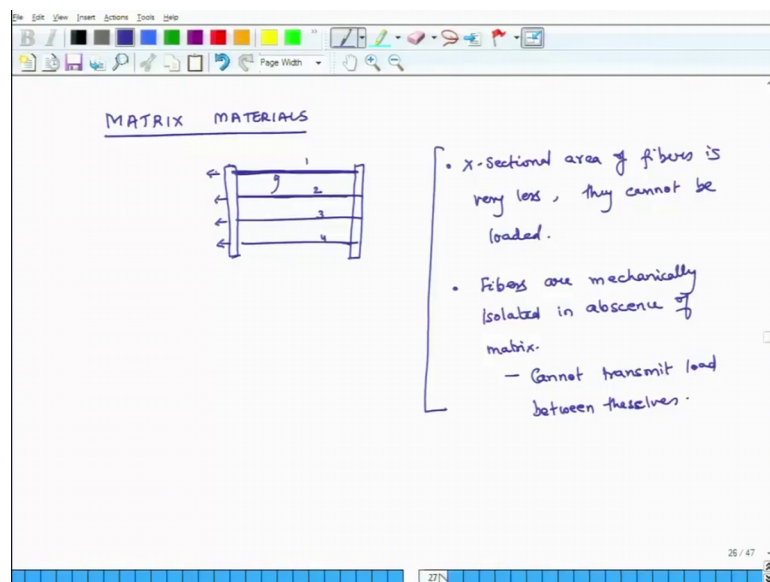 File Edit View Insert Actions Tools Help
B I
Page Width
MATRIX MATERIALS
1
2
3
4
• x-sectional area of fibers is
very less, they cannot be
loaded.
• Fibers are mechanically
isolated in abscence of
matrix.
– Cannot transmit load
between theselves.
26 / 47
27